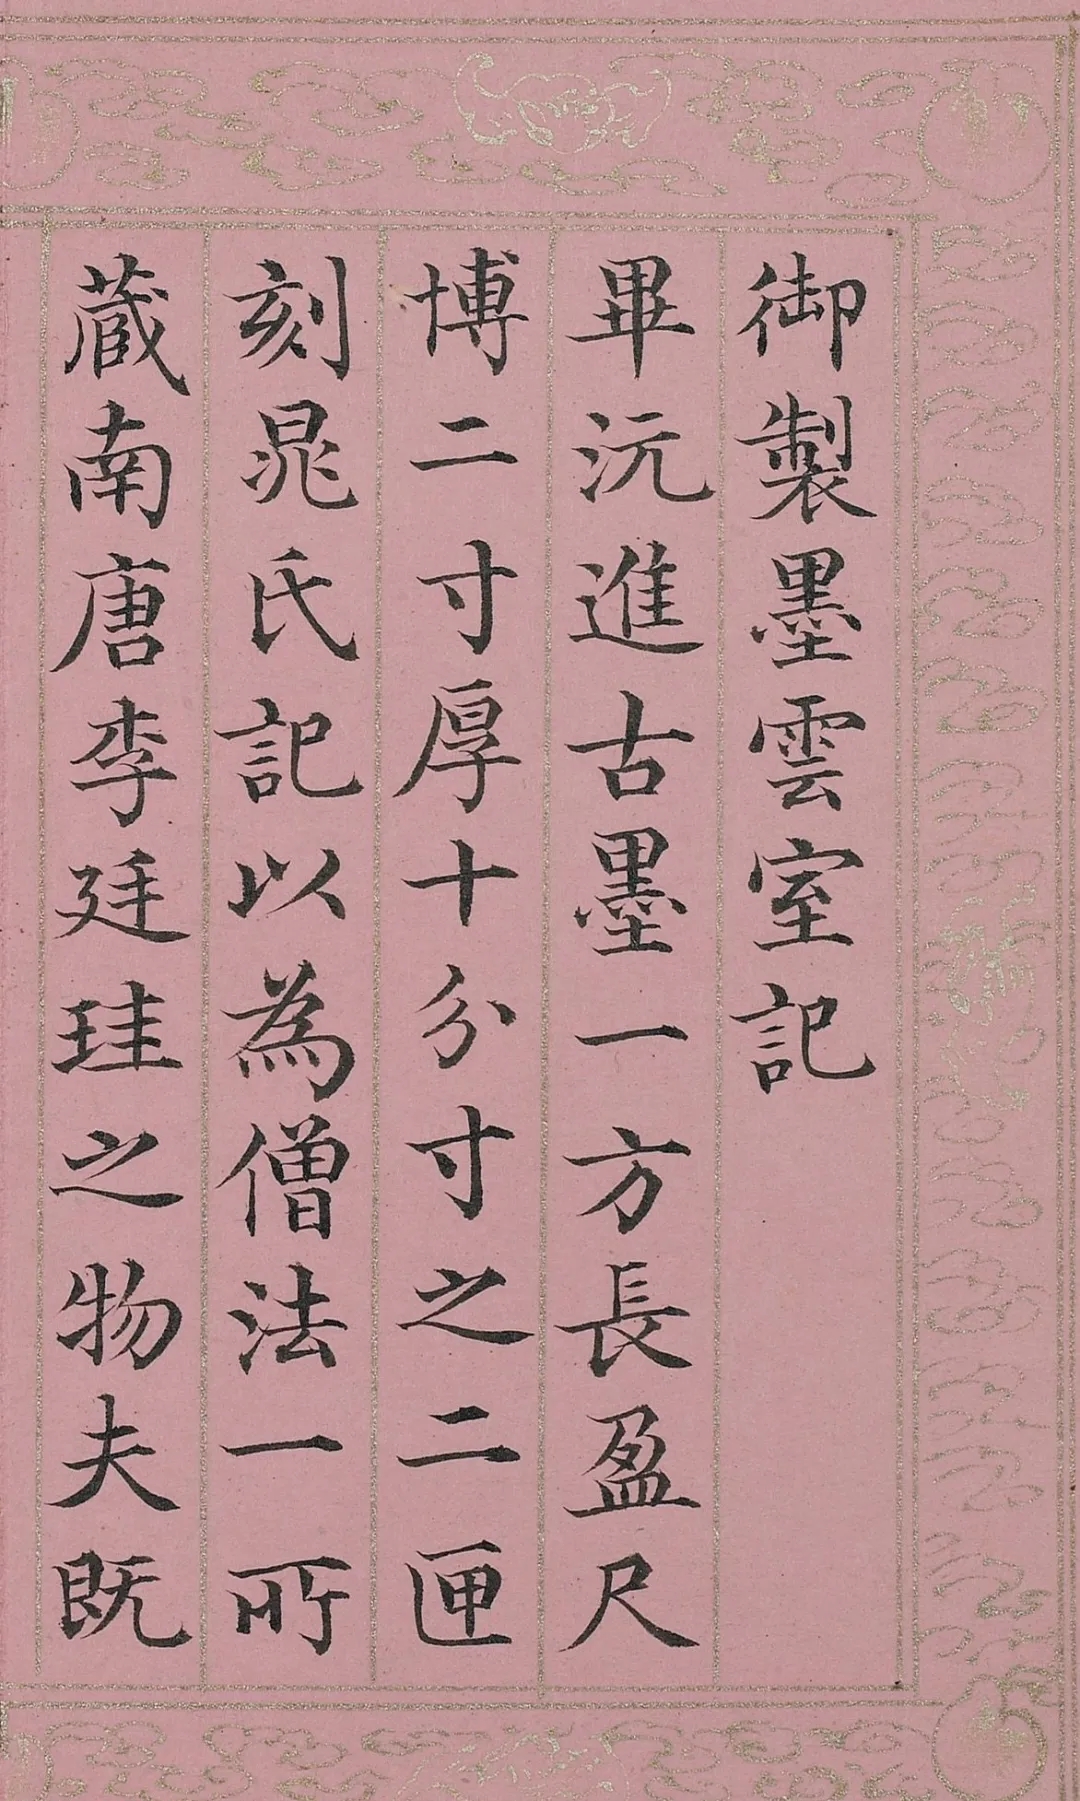 御製墨雲室記
畢沅進古墨一方長盈尺
博二寸厚十分寸之二匣
刻晁氏記以為僧法一所
蔵南唐李廷珪之物夫既